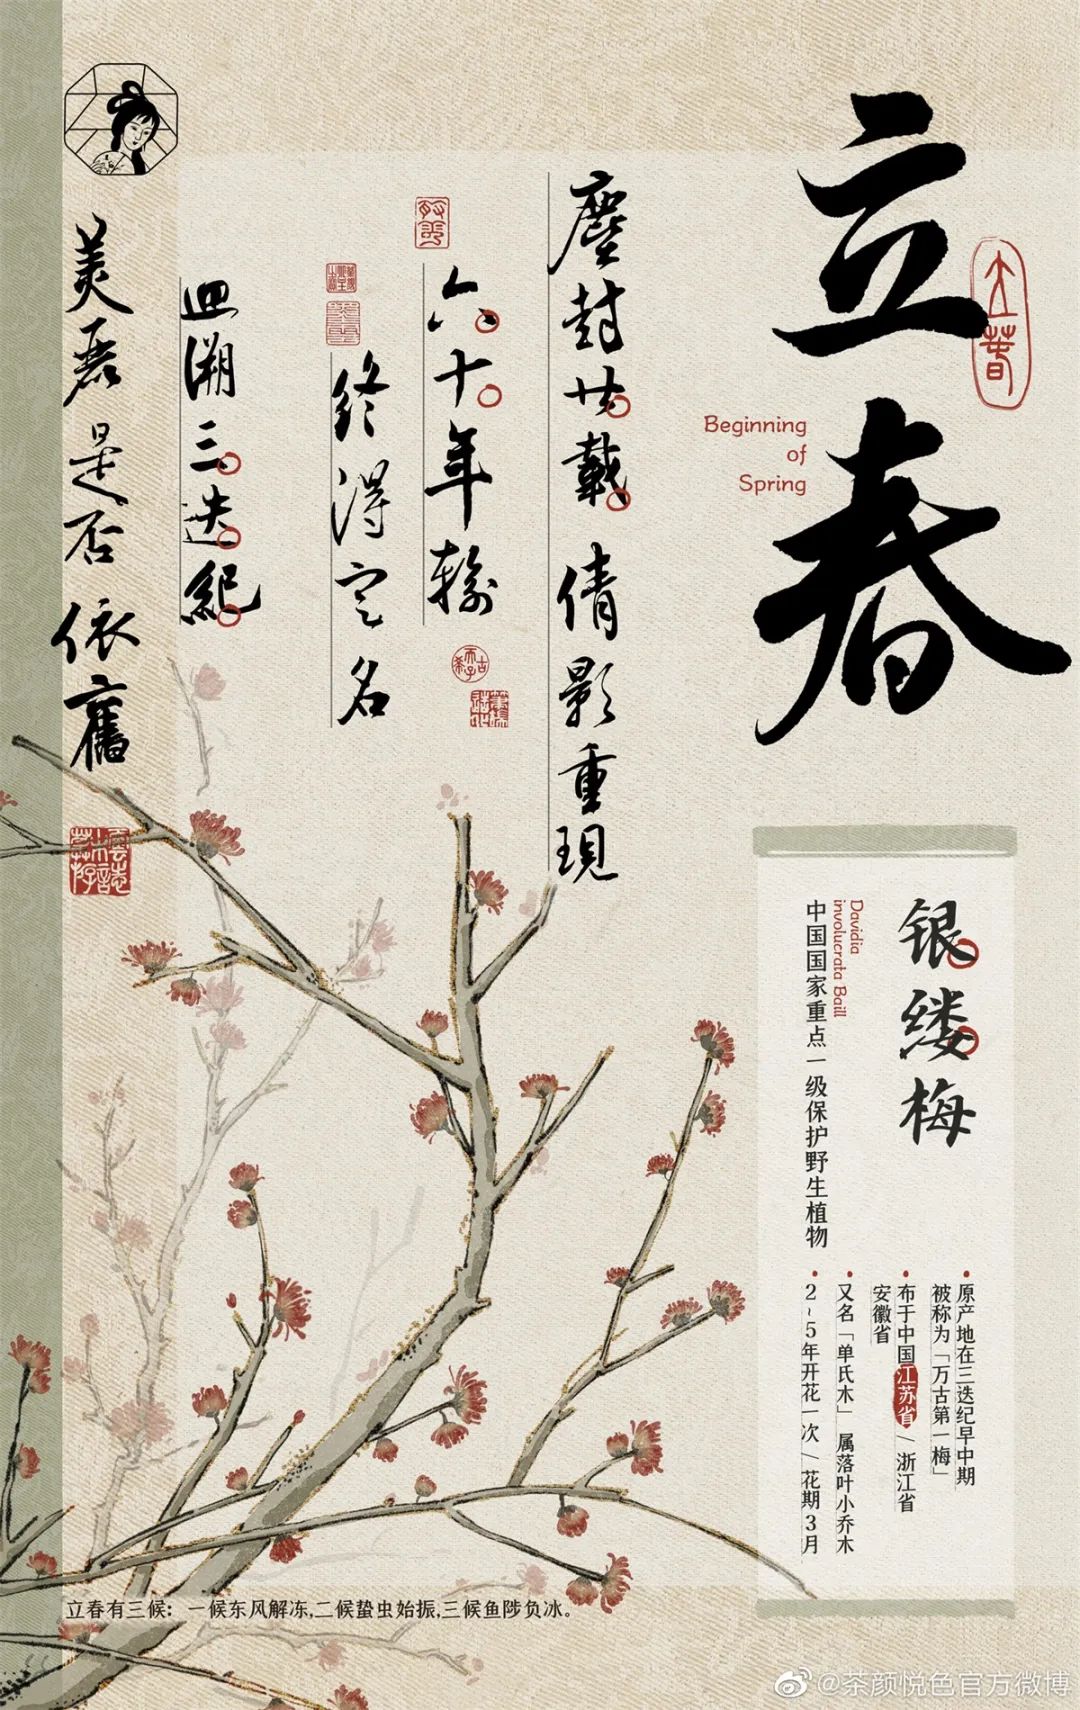 立春
立春
Beginning
of
Spring
塵封廿載 倩影重現
六十年輪
終得定名
迴溯三迭紀
美君是否依舊
银缕梅
Davidia
involucrata Baill
中国国家重点一级保护野生植物
• 原产地在三迭纪早中期
被称为「万古第一梅」
• 布于中国江苏省 / 浙江省
安徽省
• 又名「单氏木」 属落叶小乔木
• 2~5年开花一次 / 花期3月
立春有三候：一候东风解冻,二候蛰虫始振,三候鱼陟负冰。
@茶颜悦色官方微博